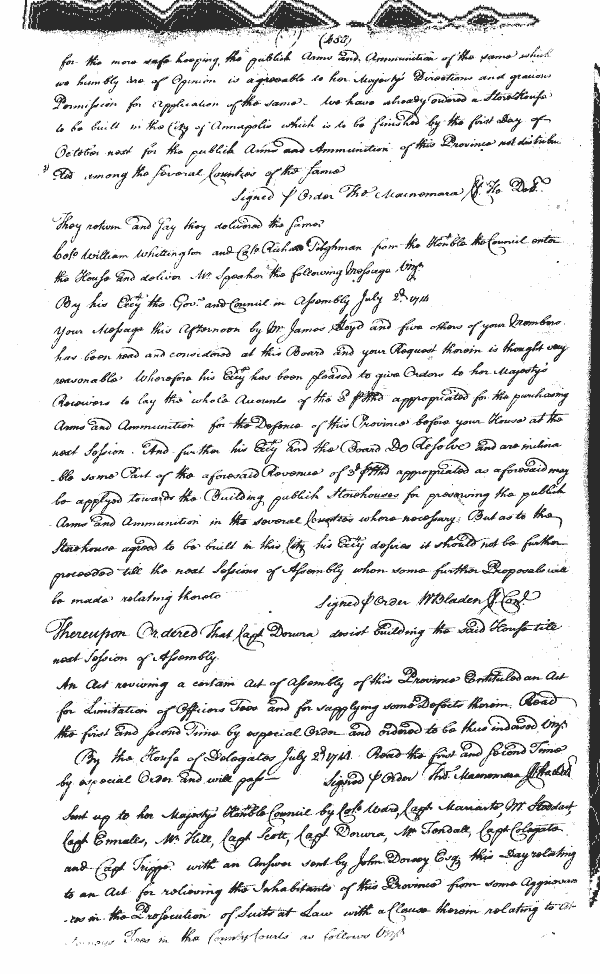 (457)
for the more safe keeping the publick Arms and Ammunition of the same which
we humbly are of Opinion is agreeable to her Majestys Directions and gracious
Permission for Application of the same. We have already ordered a Storehouse
to be built in the City of Annapolis which is to be finished by the first Day of
October next for the publick Arms and Ammunition of this Province not distribu
ted among the several Counties of the same
Signed p Order Tho Macnemara Cl. Ho. Del.
They return and say they delivered the same
Colo William Whittington and Colo Richard Tilghman from the Honble the Council enter
the House and deliver Mr Speaker the following Message Vizt
By his Excy the Govr and Council in Assembly July 2d 1714
Your Message this Afternoon by Mr James Lloyd and five others of your Members
has been read and considered at this Board and your Request therein is thought very
reasonable Wherefore his Excy has been pleased to give Orders to her Majestys
Receivers to lay the whole Accounts of the 3d p hhd appropriated for the purchasing
Arms and Ammunition for the Defence of this Province before your House at the
next Session. And further his Excy and the Board Do Resolve and are inclina
ble some Part of the aforesaid Revenue of 3d p hhd appropriated as aforesaid may
be applyed towards the Building publick Storehouses for preserving the publick
Arms and Ammunition in the several Counties where necessary; But as to the
Storehouse agreed to be built in this City his Excy desires it should not be further
proceeded till the next Sessions of Assembly when some further Proposals will
be made relating thereto
Signed p Order W Bladen Cl. Col.
Thereupon Ordered That Capt Dowra desist building the said House till
next Session of Assembly.
An Act reviving a certain Act of Assembly of this Province Entituled an Act
for Limitation of Officers Fees and for supplying some Defects therein. Read
the first and second Time by especial Order and ordered to be thus indorsed Vizt
By the House of Delegates July 2d 1714. Read the first and second Time
by especial Order and will pass Signed p Order Tho. Macnemara
Sent up to her Majestys Honble Council by Colo Ward, Capt Mariarte, Mr Stoddart,
Capt Ennales, Mr Hill, Capt Scott, Capt Dowra, Mr Tendall, Capt Colegate
and Capt Trippe with an Answer sent by John Dorsey Esq. this Day relating
to an Act for relieving the Inhabitants of this Province from some Aggrievan
ces in the Prosecution of Suits at Law with a Clause therein relating to At
torneys Fees in the County Courts as follows Vizt